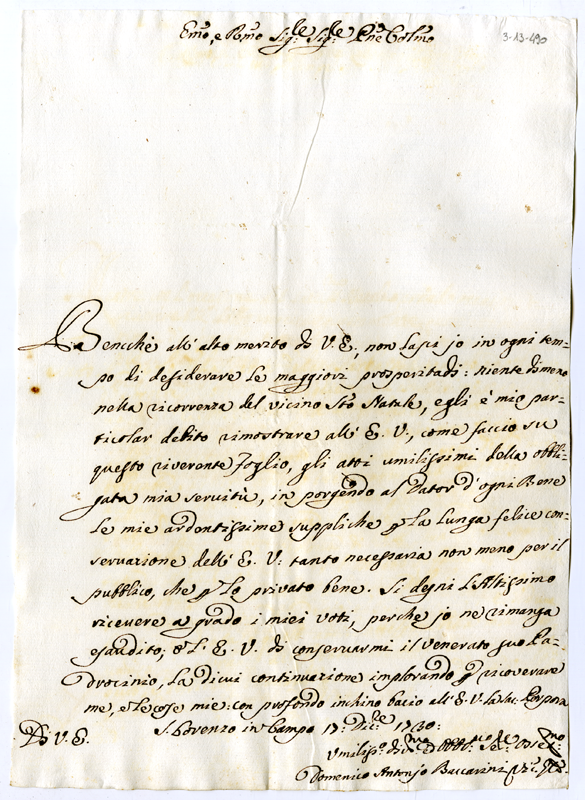 Emo, e Rmo Sig.re Sig.re Pne Colmo
3-13-490
Bencchè all' alto merito di V. E., non lasci io in ogni tem=
po di desiderare le maggiori prosperitadi: niente dimeno
nella ricorrenza del vicino Sto Natale, egli è mio par=
ticolar debito rimostrare all' E. V., come faccio su
questo riverente foglio, gli atti umilissimi della obbli=
gata mia servitù, in porgendo al Dator d' ogni Bene
le mie ardentissime suppliche p la lunga felice con=
servazione dell' E. V: tanto necessaria non meno per il
pubblico, che p lo privato bene. Si degni l'Altissimo
ricevere a grado i miei voti, perche io ne rimanga
esaudito; e l' E. V. di conservarmi il venerato suo Pa=
drocinio, la di cui continuazione implorando p ricoverare
me, e le cose mie: con profondo inchino bacio all' E. V. la Sac. Porpora
S. Lorenzo in Campo 17: Dic.re 1730:
Di V. E.
Umiliss.o Div.mo Obblig.mo Se.re Osse.mo
Domenico Antonio Baccarini